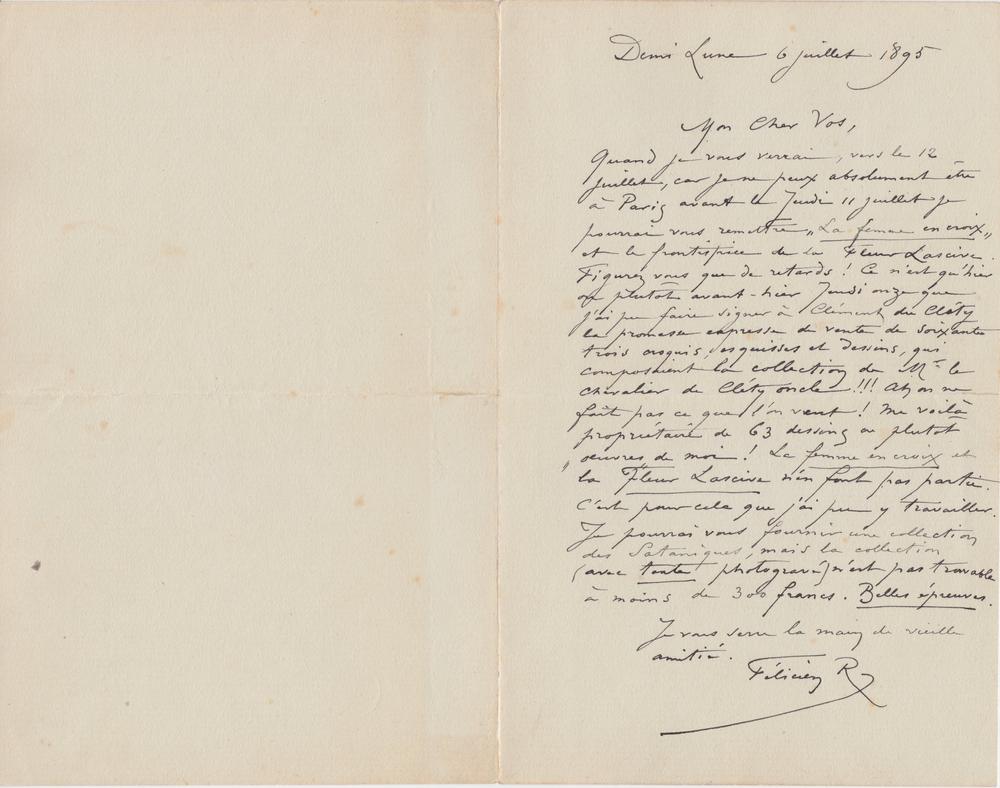 Demi Lune 6 juillet 1895
Mon Cher Vos,
Quand je vous verrai, vers le 12
juillet, car je ne peux absolument être
à Paris avant le Jeudi 11 juillet je
pourrai vous remettre „La femme en croix„
et le frontispice de la Fleur Lascive.
Figurez vous que de retards ! Ce n'est qu'hier
ou plutôt avant-hier Jeudi onze que
j'ai pu faire signer à Clément du Cléty
la promesse expresse de vente de soixante
trois croquis, esquisses et dessins, qui
composaient la collection de Mr le
chevalier de Cléty oncle !!! Ah on ne
fait pas ce que l'on veut ! Me voilà
propriétaire de 63 dessins ou plutôt
œuvres de moi ! La femme en croix et
la Fleur Lascive n'en font pas partie.
C'est pour cela que j'ai pu y travailler.
Je pourrai vous fournir une collection
des Sataniques, mais la collection
(avec texte photogravé) n'est pas trouvable
à moins de 300 francs. Belles épreuves.
Je vous serre la main de vieille
amitié.
Félicien R